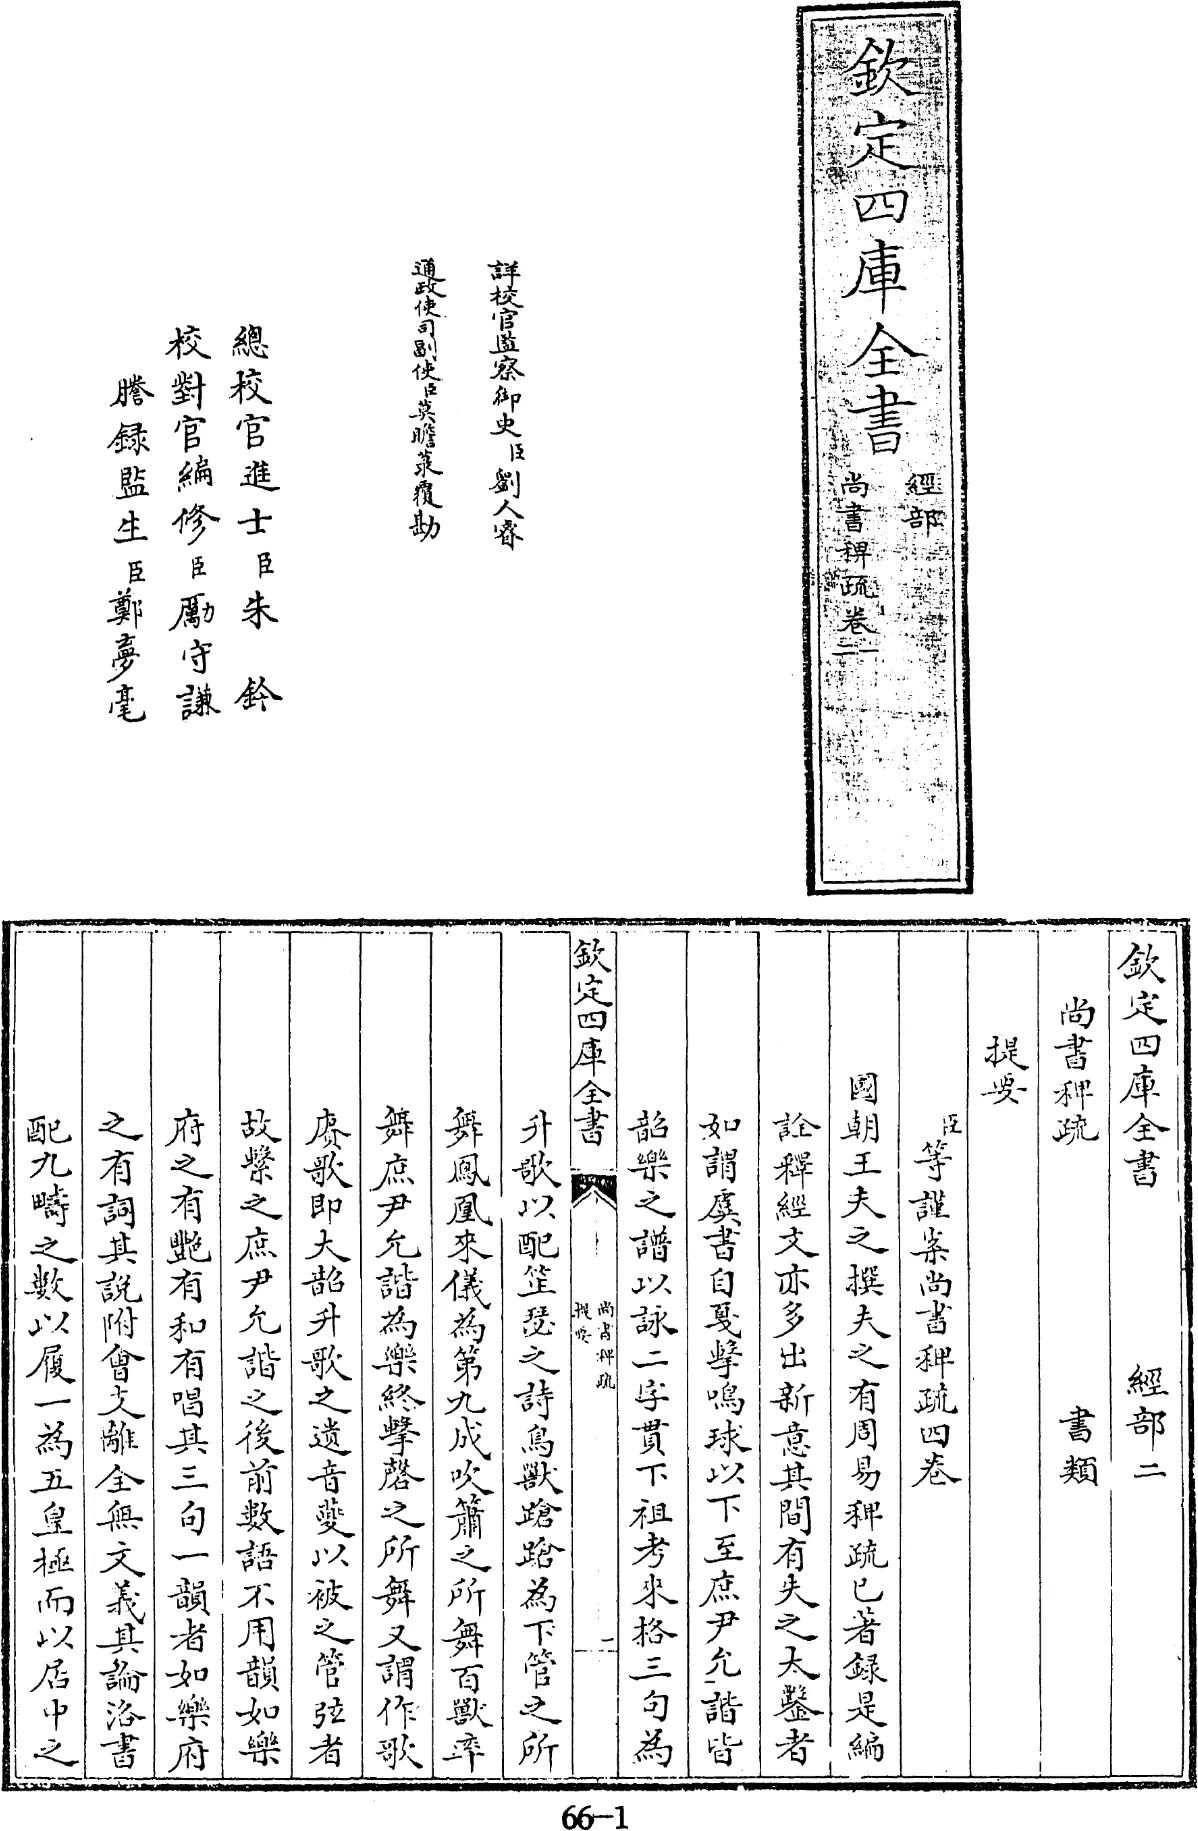 欽定四庫全書
經部
尚書稗疏卷一
二
詳校官監察御史臣劉人睿
通政使司副使臣莫瞻菉覆勘
總校官進士臣朱鈐
校對官編修臣厲守謙
謄録監生臣鄭夢毫
欽定四庫全書 經部二
尚書稗疏 書類
提要
臣等謹案尚書稗疏四卷
國朝王夫之撰夫之有周易稗疏已著録是編
詮釋經文亦多出新意其間有失之太鑿者
如謂虞書自戛擊鳴球以下至庶尹允諧皆
韶樂之譜以詠二字貫下祖考來格三句為
欽定四庫全書 尚書稗疏 提要 二
升歌以配笙瑟之詩鳥獸蹌蹌為下管之所
舞鳳凰來儀為第九成吹簫之所舞百獸率
舞庶尹允諧為樂終擊磬之所舞又謂作歌
賡歌即大韶升歌之遺音夔以被之管弦者
故繫之庶尹允諧之後前數語不用韻如樂
府之有艶有和有唱其三句一韻者如樂府
之有詞其說附會支離全無文義其論洛書
配九疇之數以履一為五皇極而以居中之
66-1